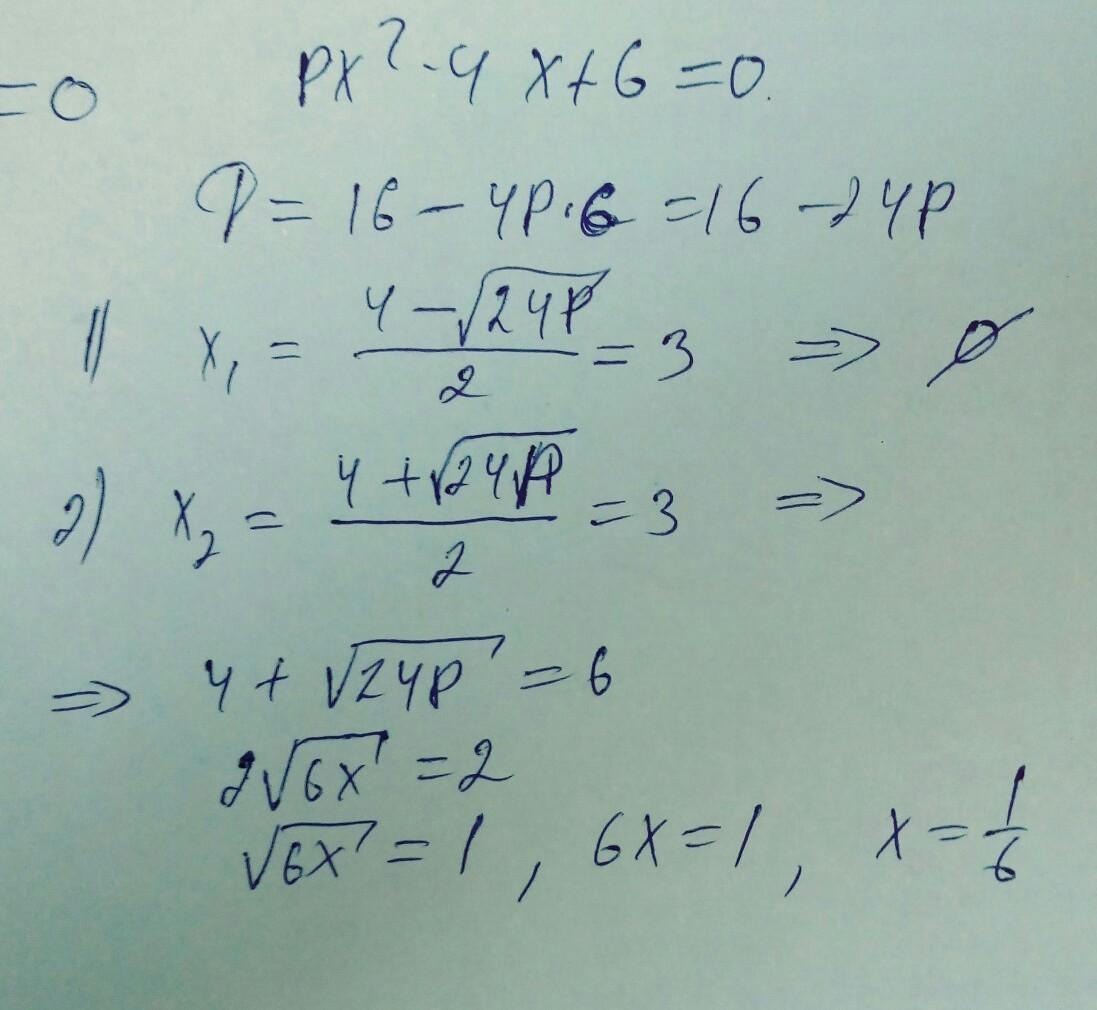 =0 px²-4x+6=0.
D=16-4p·6=16-24p
1) x₁ = (4-√24p)/2 = 3 => ∅
2) x₂ = (4+√24p)/2 = 3 =>
=> 4+√24p = 6
2√6x = 2
√6x = 1, 6x=1, x=1/6